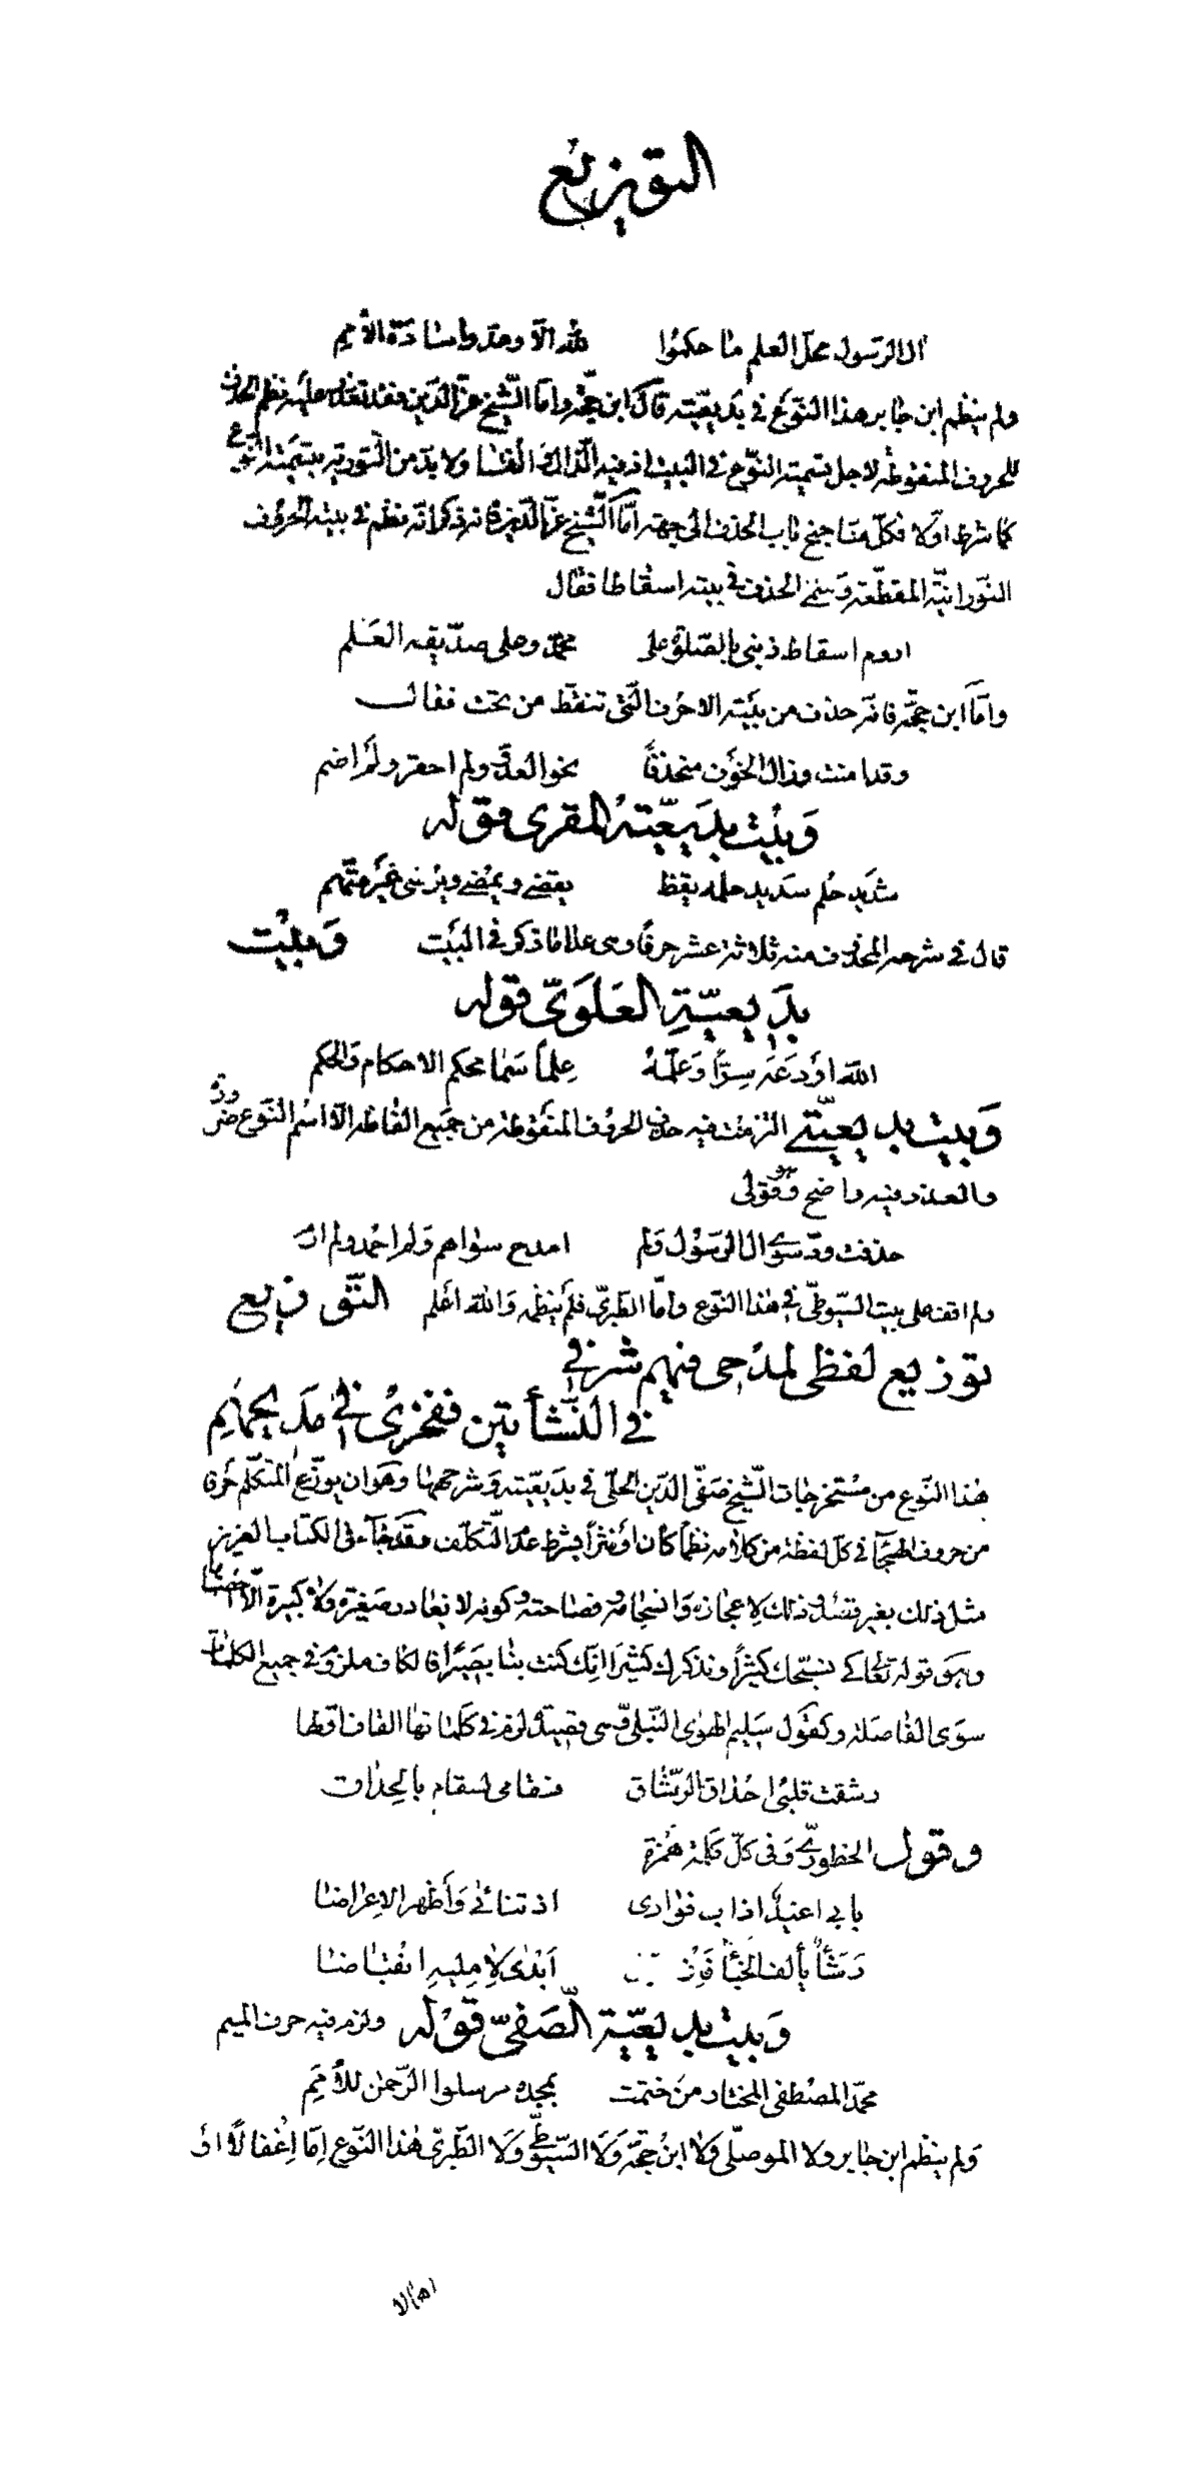 التوزيع
آل الرسول محل العلم ما حكموا لله الا وعدوا سادة الأمم
ولم ينظم ابن جابر هذا النّوع في بديعيّته قال ابن حجّة وامّا الشّيخ عزّ الدّين فقد تعذّر عليه نظم الحذف
للحروف المنقوطة لاجل تسمية النّوع في البيت اذ فيه الذال والفا ولا بدّ من التورية بتسميته النّوع
كما شرط اوّلا فكلّ منا جنح باب الحذف الى جهة امّا الشّيخ عزّ الدّين فانه ذكر انّه نظم في بيته الحروف
النّورانيّة المقطّعة وسمى الحذف في بيته اسقاطا فقال
اروم اسقاط ذنبى بالصّلوة على محمّد وعلى صدّيقه العلم
وامّا ابن حجّة فانّه حذف من بيته الاحرف الّتى تنقط من تحت فقال
وقد امنت وزال الخوف منحذفًا نحو العدوّ ولم احقر ولم اضم
وَبيت بديعيّة المقرى قوله
شديد حلم سديد حلمه يقظ يقضى ويمضى ويرضى غير متّهم
قال في شرحه المحذوف منه ثلاثة عشر حرفًا وهى علا ما ذكر في البيت وَبيت
بديعيّةِ العَلَوىّ قوله
اللّه اَودَعَه سِرًّا وَعلّمهُ عِلمًا سَما محكم الاحكام والحكم
وَبيت بديعيّتي التزمت فيه حذف الحروف المنقوطة من جميع الفاظه الّا اسم النّوع ضرورة
والعذر فيه واضح وهو قولى
حذفت ودّ سوى ال الرسول ولم امدح سواهم ولم احمد ولم ارم
ولم اقف على بيت السّيوطىّ في هذا النّوع وامّا الطّبرىّ فلم ينظمه وَاللّه أعلم التّوزيع
توزيع لفظى لمدحى فيهم شرفي
في النّشأتين ففخرى في مديحهم
هذا النّوع من مستخرجات الشّيخ صَفىّ الدّين الحلّى في بديعيّته وَشرحها وهو ان يوزّع المتكلّم حرفا
من حروف الهجآ في كلّ لفظة من كلامه نظمًا كان أو نثرًا بشرط عدم التّكلّف وقد جآء في الكتاب العزيز
مثل ذلك بغير قصد وذلك لاعجازه وَانسجامه وفصاحته وكونه لا يغادر صغيرة ولا كبيرة الّا احصاها
وهو قوله تعالى كى نسبّحك كثيرًا ونذكرك كثيرًا انّك كنت بنا بصيرًا فالكاف ملزومة في جميع الكلمات
سوى الفاصلة وكقول سليم الهوى النّيلى في قصيدة لزم في كلماتها القاف اقطا
رشقت قلبى احداق الرّشاق فسقامى لسقام بالحداق
وقول الحظيرىّ وَفي كلّ كلمة همزة
بابى اغيد اذاب فؤادى اذ تنائى وَأظهر الاعراضا
رَشَأٌ يألف الجفاء أبدى لآمليه انقباضا
وَبيت بديعيّة الصّفىّ قوله ولزم فيه حرف الميم
محمّد المصطفى المختار من ختمت بمجده مرسلوا الرّحمن للأمم
وَلم ينظم ابن جابر ولا الموصلّى ولا ابن حجّة وَلَا السّيوطىّ وَلَا الطّبرىّ هذا النّوع اِمّا اِغفالًا اوْ
اهمالا